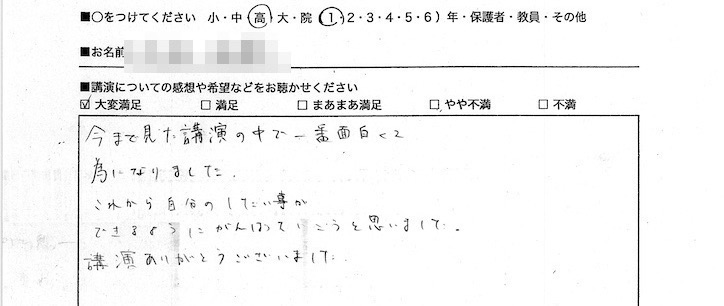 ■○をつけてください 小・中・高・大・院（1・2・3・4・5・6）年・保護者・教員・その他
■お名前
■講演についての感想や希望などをお聴かせください
☑大変満足 □満足 □まあまあ満足 □やや不満 □不満
今まで見た講演の中で一番面白くて
為になりました。
これから自分のしたい事が
できるようにがんばっていこうと思いました。
講演ありがとうございました。